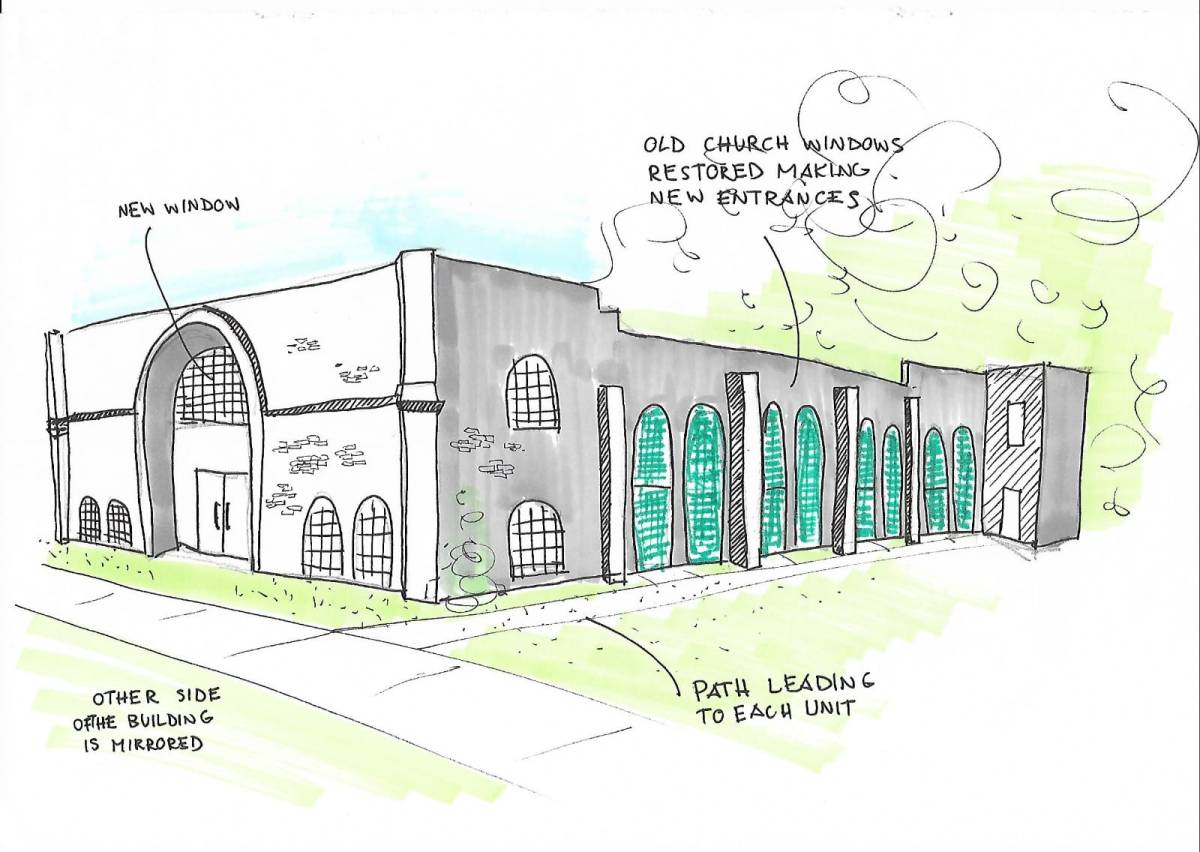 NEW WINDOW
OLD CHURCH WINDOWS
RESTORED MAKING
NEW ENTRANCES
OTHER SIDE
OF THE BUILDING
IS MIRRORED
PATH LEADING
TO EACH UNIT